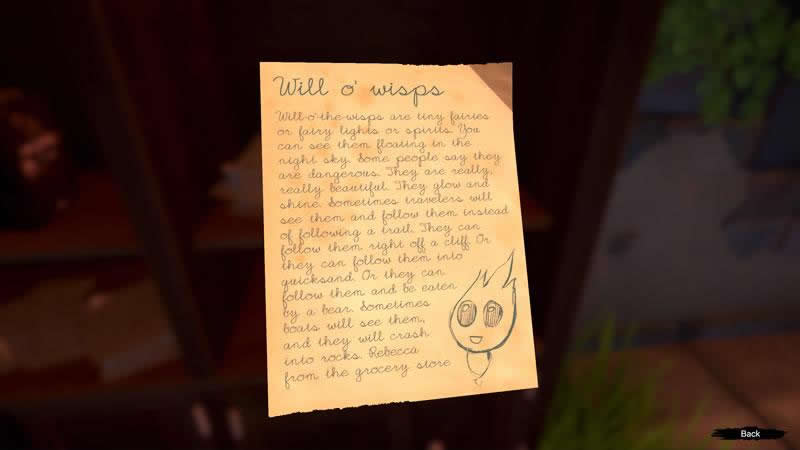 Will o' wisps
Will-o'-the-wisps are tiny fairies
or fairy lights or spirits. You
can see them floating in the
night sky. Some people say they
are dangerous. They are really,
really beautiful. They glow and
shine. Sometimes travelers will
see them and follow them instead
of following a trail. They can
follow them right off a cliff. Or
they can follow them into
quicksand. Or they can
follow them and be eaten
by a bear. Sometimes
boats will see them,
and they will crash
into rocks. Rebecca
from the grocery store
Back